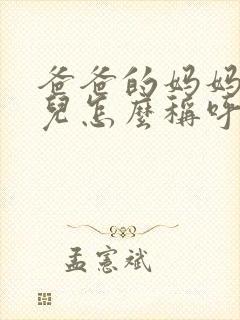 爸爸的妈妈
兒怎麼稱呼
孟憲斌